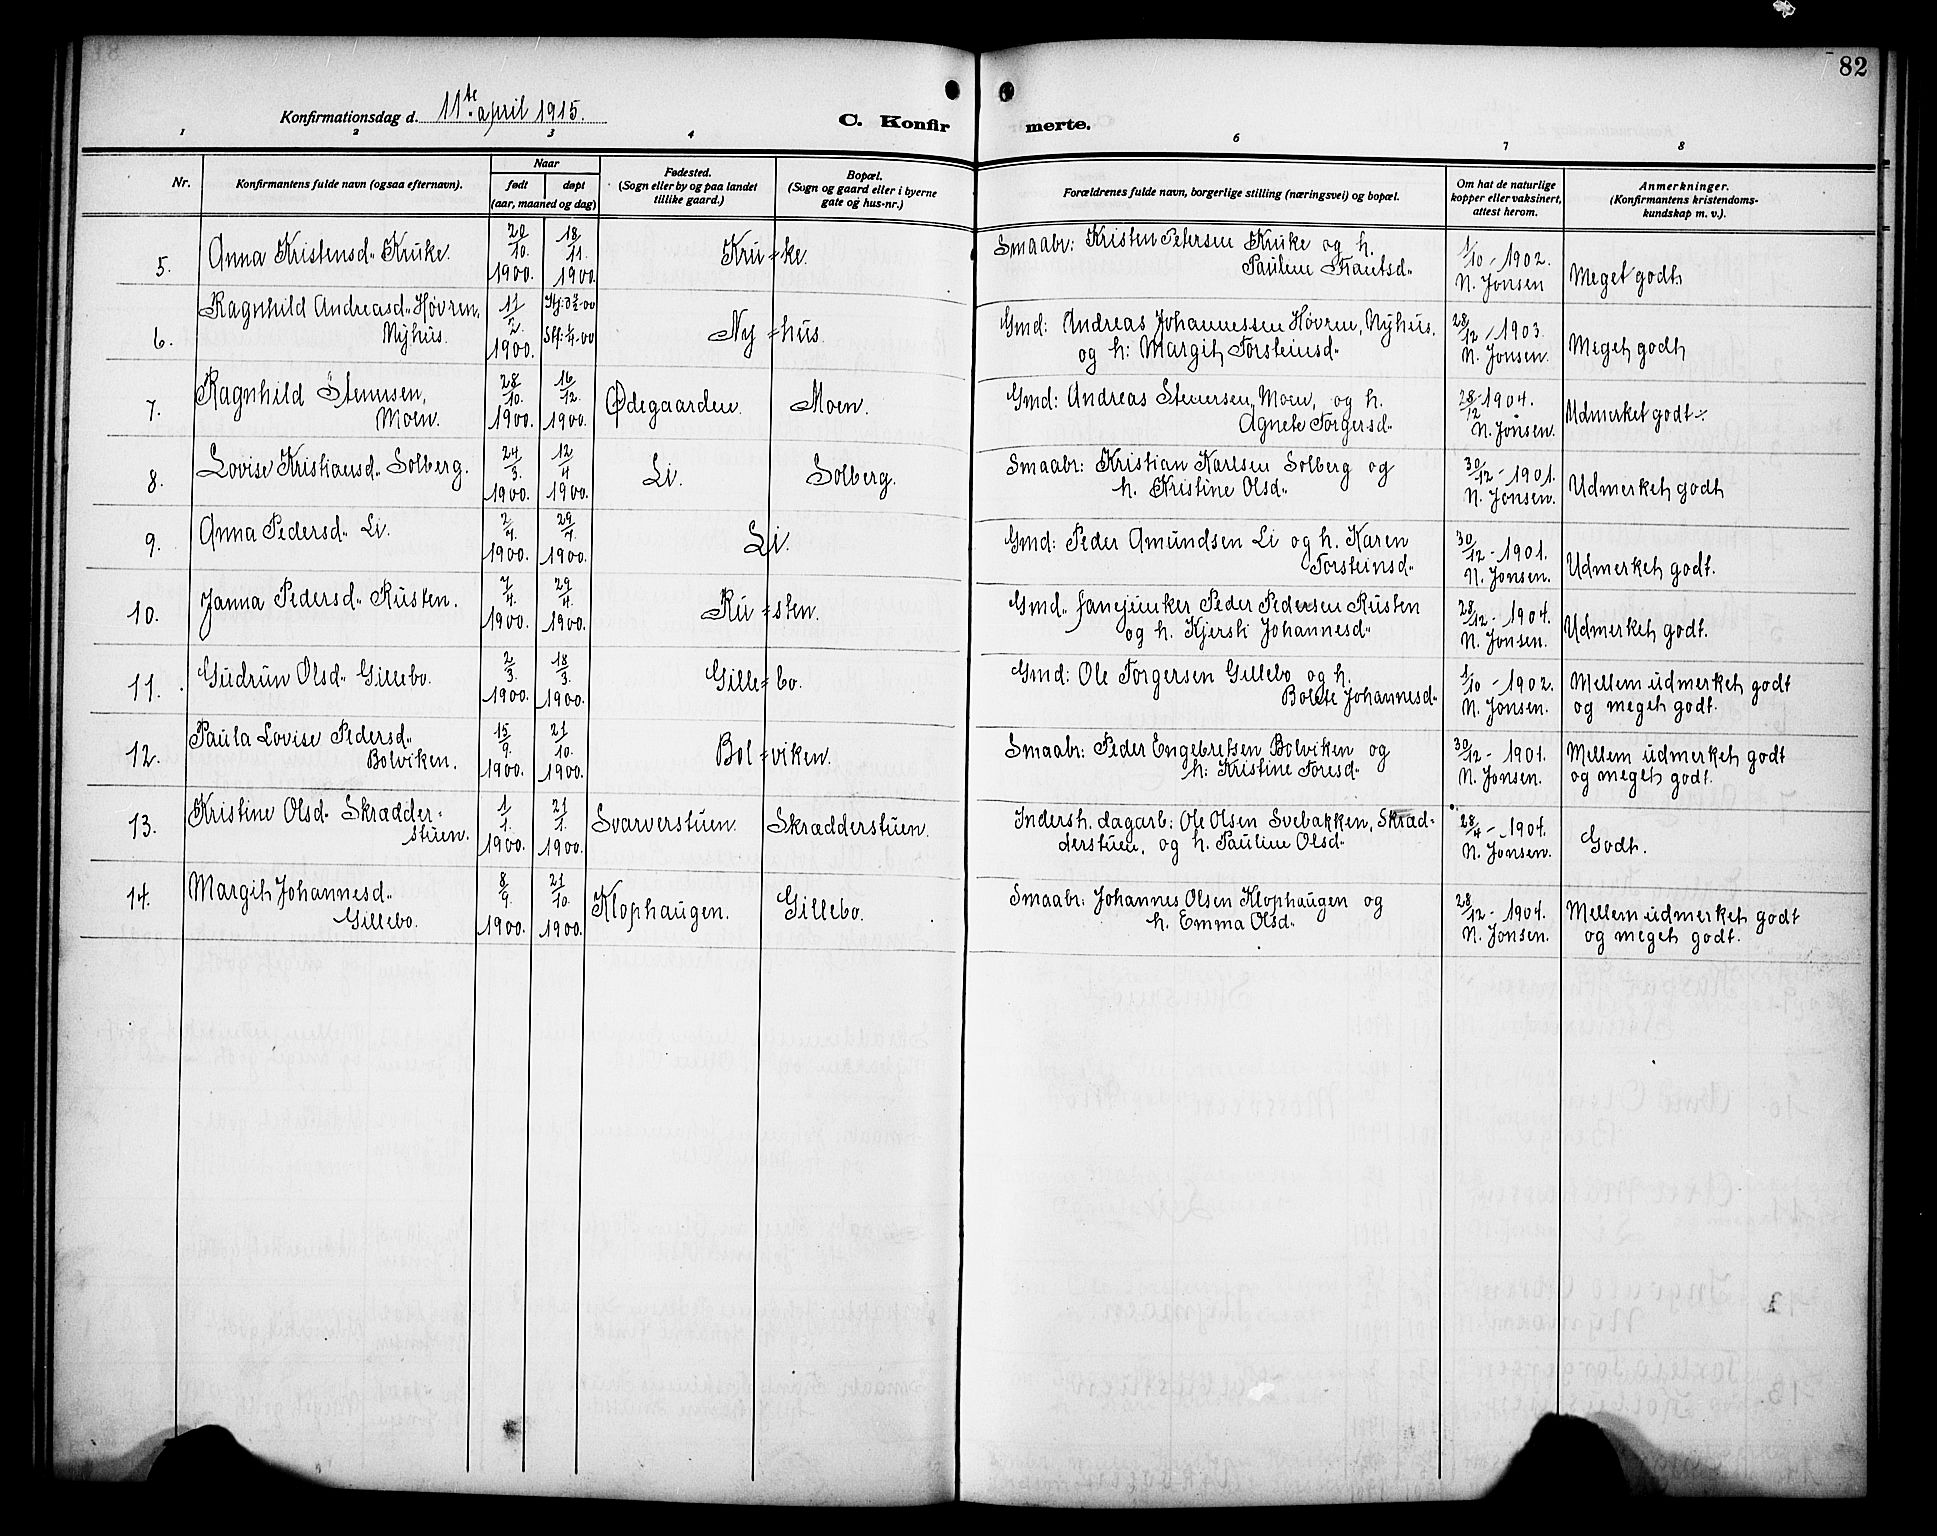 82
Konfirmationsdag d. 11te april 1915.
C. Konfir merte.
1 2 3 4 6 7 8
Nr.
Konfirmantens fulde navn (ogsaa efternavn).
Naar
født døpt
(aar, maaned og dag)
Fødested.
(Sogn eller by og paa landet
tillike gaard.)
Bopæl.
(Sogn og gaard eller i byerne
gate og hus-nr.)
Forældrenes fulde navn, borgerlige stilling (næringsvei) og bopæl.
Om hat de naturlige
kopper eller vaksinert,
attest herom.
Anmerkninger.
(Konfirmantens kristendoms-
kundskap m. v.).
5. Anna Kristensd.. Kruke. 20/10. 1900. 18/11. 1900. Kru=ke. Smaabr: Kristen Petersen Kruke og h. 1/10 - 1902.
Pauline Frantsd.. N. Jonsen Meget godt.
6. Ragnhild Andreasd.. Høvren, 11/2. 1900. Ny=hus. Gmd: Andreas Johannessen Høvren, Nyhus. 28/12 - 1903.
Nyhus. og h: Margit Torsteinsd.. N. Jonsen. Meget godt
7. Ragnhild Stenersen, 28/10. 1900. 16/12. 1900. Ødegaarden. Moen. Gmd: Andreas Stenersen, Moen, og h. 28/12 - 1904.
Moen. Agnete Torgersd.. N. Jonsen. Udmerket godt
8. Lovise Kristiansd.. Solberg. 24/3. 1900. 12/4 1900. Li. Solberg. Smaabr: Kristian Karlsen Solberg og 30/12 - 1901.
h. Kristine Olsd.. N. Jonsen. Udmerket godt
9. Anna Pedersd.. Li. 2/4. 1900. 29/4. 1900. Li. Gmd: Peder Amundsen Li og h. Karen 30/12 - 1901.
Torsteinsd.. N. Jonsen. Udmerket godt.
10. Janna Pedersd.. Rusten. 7/4. 1900. 29/4. 1900. Ru=sten. Gmd.. fanejunker Peder Pedersen Rusten 28/12 - 1904.
og h. Kjersti Johannesd.. N. Jonsen. Udmerket godt.
11. Gudrun Olsd.. Gillebo. 2/3. 1900. 18/3. 1900. Gille=bo. Gmd: Ole Torgersen Gillebo og h. 1/10 - 1902. Mellem udmerket godt
Bolete Johannesd.. N. Jonsen. og meget godt.
12. Paula Lovise Pedersd.. 15/9. 1900. 21/10. 1900. Bol=viken. Smaabr: Peder Engebretsen Bolviken og 30/12 - 1901. Mellem udmerket godt
Bolviken. h: Kristine Toresd.. N. Jonsen. og meget godt.
13. Kristine Olsd.. Skrædder= 1/1. 1900. 21/1. 1900. Svarverstuen. Skrædderstuen. Indersh. dagarb: Ole Olsen Svebakken, Skræd- 28/4 - 1904.
stuen. derstuen, og h. Pauline Olsd.. N. Jonsen. Godt.
14. Margit Johannesd.. 8/9. 1900. 21/10. 1900. Klophaugen. Gillebo. Smaabr: Johannes Olsen Klophaugen og 28/12 - 1904. Mellem udmerket godt
Gillebo. h. Emma Olsd.. N. Jonsen. og meget godt.